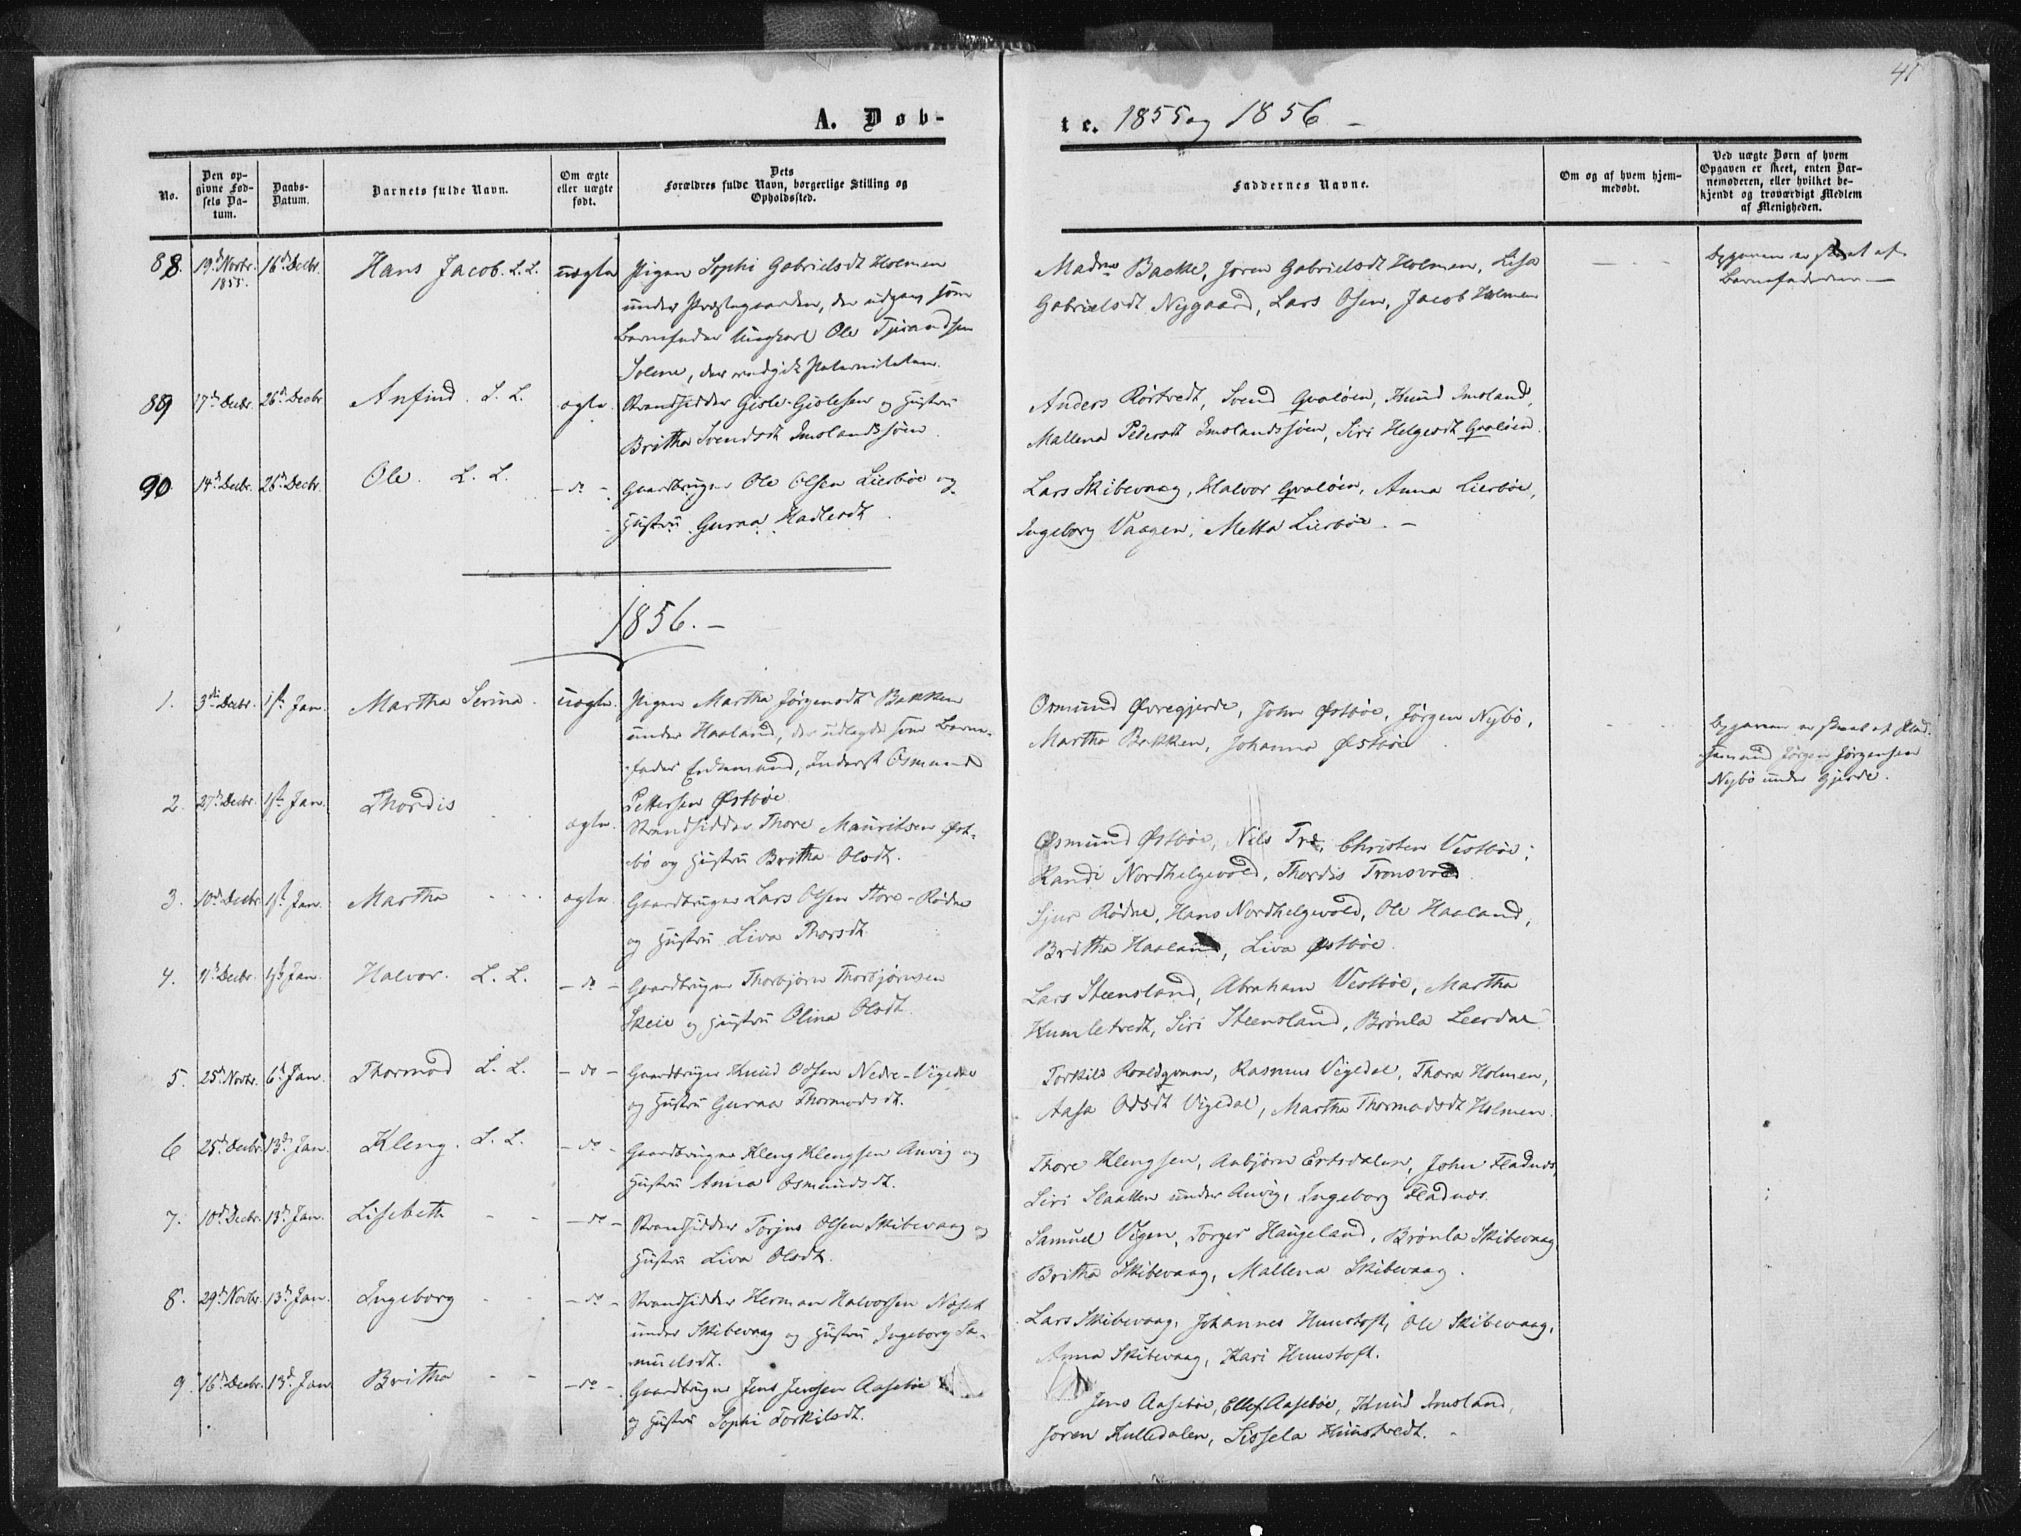 41
A. Døb-
te. 1855 og 1856 -
No.
Den op-
givne Fød-
sels Da-
tum.
Daabs-
Datum.
Barnets fulde Navn.
Om ægte
eller uægte
født.
Dets
Forældres fulde Navn, borgerlige Stilling og
Opholdssted.
Faddernes Navne.
Om og af hvem hjem-
medøbt.
Ved uægte Børn af hvem
Opgaven er skeet, enten Bar-
nemoderen, eller hvilket be-
kjendt og troværdigt Medlem
af Menigheden.
88. 19d Novbr. 1855. 16d Decbr. Hans Jacob. L. L. uægte Pigen Sophi Gabrielsdt Holmen
under Præstegaarden, der udgav som
Barnefader Ungkarl Ole
Solene, der vedgik Paterniteten.
Madme Backe, Joren Gabrielsdt Holmen, Lisa
Gabrielsdt Nygaard, Lars Osen, Jacob Holmen
Opgaven er skeet af
Barnefaderen -
89 17d Decbr. 26d Decbr Anfind. L. L. ægte. Strandsidder Gisle Gislesen og Hustru
Britha Svendsdt Imslandssjøen
Anders Rørtvedt, Svend Qvaløen, Knud Imsland,
Mallena Pedersdt Imslandssjøen, Siri Helgesdt Qvaløen.
90 14d Decbr. 26d Decbr. Ole. L. L. - do - Gaardbruger Ole Olsen Liersbøe og
Hustru Guroa Hadlesdt.
Lars Skibevaag, Halvor Qvaløen, Anna Liersbøe,
Ingeborg Vaagen, Metta Liersbøe. -
1856. -
1. 3die Decbr. 1ste Jan. Martha Serina. uægte. Pigen Martha Jørgensdt Bakken
under Haaland, der udlagde som Barne-
fader Enkemand, Inderst Osmund
Pettersen Østbøe
Osmund Øvregjerde, John Østbøe, Jørgen Nybø,
Martha Bakken, Johanna Østbøe
Opgaven er skeet af Huus-
mand Jørgen Jørgensen
Nybø under Gjerde.
2. 27d Decbr. 1ste Jan. Thordis ægte. Strandsidder Thore Mauritsen Øst-
bø og Hustru Britha Olsdt.
Osmund Østbøe, Nils Træ, Christen Vestbøe,
Randi Nordhelgevold, Thordis Tronsvold
3. 10d Decbr. 1ste Jan. Martha - - - ægte Gaardbruger Lars Olsen Store-Rødne
og Hustru Liva Thorsdt.
Sjur Rødne, Hans Nordhelgevold, Ole Haaland,
Britha Haaland, Liva Østbøe.
4. Decbr. Jan. Halvor. L. L. - do - Gaardbruger Thorbjørn Thorbjørnsen
Skeie og Hustru Olina Olsdt.
Lars Steensland, Abraham Vestbøe, Martha
Humletvedt, Siri Steensland, Brønla Leerdal
5. 25d Novbr. 6d Jan. Thormod L. L. - do - Gaardbruger Knud Odsen Nedre-Vigedal
og Hustru Guroa Thormodsdt.
Torkild Roaldqvam, Rasmus Vigedal, Thora Holmen,
Aasa Odsdt Vigedal, Martha Thormodsdt Holmen.
6 25d Decbr. 13d Jan. Kleng. L. L. - do - Gaardbruger Kleng Klengsen Anvig og
Hustru Anna Osmundsdt.
Thore Klengsen, Aubjørn Ertsdalen, John Fladnes,
Siri Slaatten under Anvig, Ingeborg Fladnes.
7. 10d Decbr. 13d Jan. Lisebeth - - - do - Strandsidder Torjus Olsen Skibevaag og
Hustru Liva Olsdt.
Samuel Vigen, Torger Haugeland, Brønla Skibevaag,
Britha Skibevaag, Mallena Skibevaag.
8. 29d Novbr. 13d Jan. Ingeborg - - - do - Strandsidder Herman Halvorsen Næset
under Skibevaag og Hustru Ingeborg Sa-
muelsdt.
Lars Skibevaag, Johannes Hunstoft, Ole Skibevaag,
Anna Skibevaag, Kari Hunstoft.
9. 16d Decbr. 13d Jan Britha - - - do - Gaardbruger Jens Jensen Aasebøe
og Hustru Sophi Torkilsdt.
Jens Aasebøe, Ellef Aasebøe, Knud Imsland,
Joren Kulledalen, Sissela Hunstvedt. -